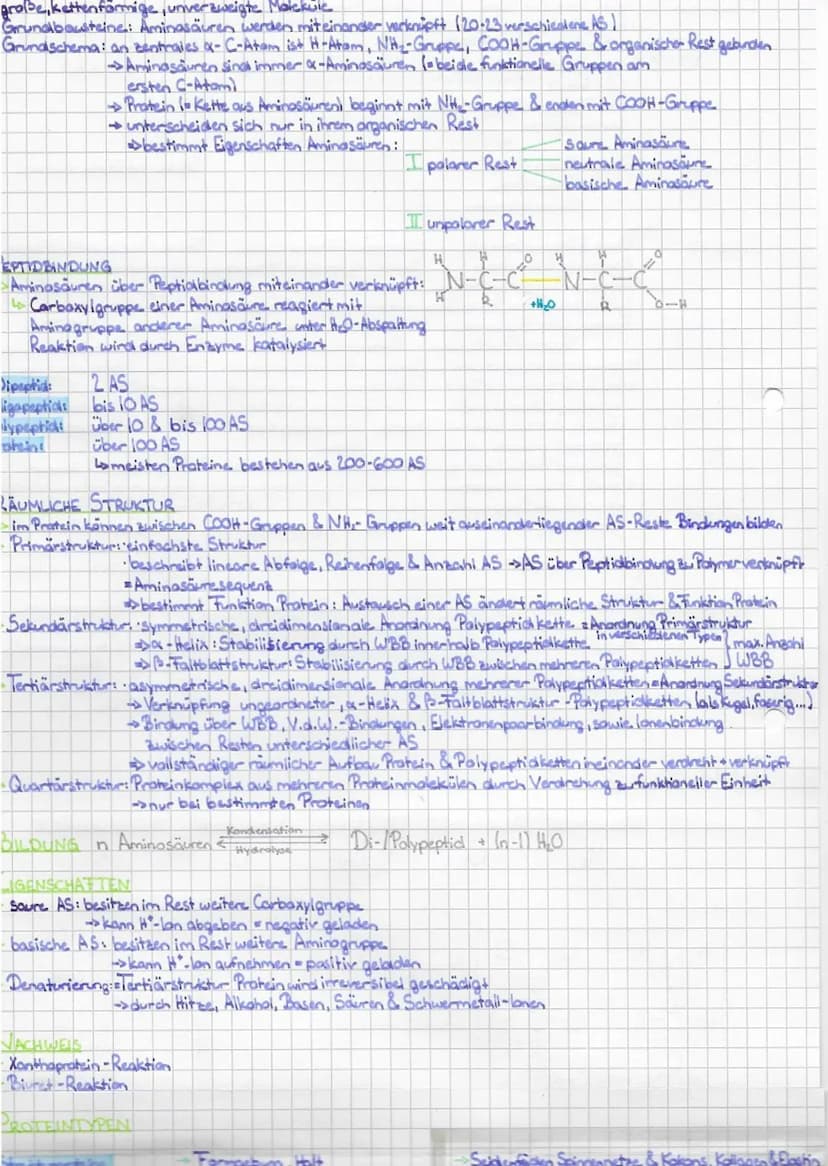 große, kettenförmige, unverzweigte Moleküle
Grundbausteine: Aminosäuren werden miteinander verknüpft (20-23 verschiedene AS)
Grundschema: an zentrales α-C-Atom ist H-Atom, NH₂-Gruppe, COOH-Gruppe & organischer Rest gebunden
→ Aminosäuren sind immer α-Aminosäuren (= beide funktionelle Gruppen am
ersten C-Atom)
→ Protein (= Kette aus Aminosäuren) beginnt mit NH₂-Gruppe & enden mit COOH-Gruppe
→ unterscheiden sich nur in ihrem organischen Rest
⇒ bestimmt Eigenschaften Aminosäuren:
I polarer Rest
saure Aminosäure
neutrale Aminosäure
basische Aminosäure
II unpolarer Rest
EPTIDBINDUNG
Aminosäuren über Peptidbindung miteinander verknüpft:
↳ Carboxylgruppe einer Aminosäure reagiert mit
Aminogruppe anderer Aminosäure unter H₂O-Abspaltung
Reaktion wird durch Enzyme katalysiert
H H O H H O
N-C-C N-C-C
H R +H₂O R O-H
Dipeptid: 2 AS
ligopeptid: bis 10 AS
lypeptid: über 10 & bis 100 AS
otein: über 100 AS
↳ meisten Proteine bestehen aus 200-600 AS
RÄUMLICHE STRUKTUR
- im Protein können zwischen COOH-Gruppen & NH₂-Gruppen weit auseinanderliegender AS-Reste Bindungen bilden
· Primärstruktur: · einfachste Struktur
· beschreibt lineare Abfolge, Reihenfolge & Anzahl AS → AS über Peptidbindung zu Polymer verknüpft
= Aminosäuresequenz
⇒ bestimmt Funktion Protein: Austausch einer AS ändert räumliche Struktur & Funktion Protein
· Sekundärstruktur: · symmetrische, dreidimensionale Anordnung Polypeptidkette = Anordnung Primärstruktur
in verschiedenen Typen
⇒ α-Helix: Stabilisierung durch WBB innerhalb Polypeptidkette
⇒ β-Faltblattstruktur: Stabilisierung durch WBB zwischen mehreren Polypeptidketten
} max. Anzahl
WBB
· Tertiärstruktur: · asymmetrische, dreidimensionale Anordnung mehrerer Polypeptidketten = Anordnung Sekundärstruktur
→ Verknüpfung ungeordneter, α-Helix & β-Faltblattstruktur-Polypeptidketten (als Kugel, faserig...)
→ Bindung über WBB, V.d.W.-Bindungen, Elektronenpaarbindung, sowie Ionenbindung
zwischen Resten unterschiedlicher AS
⇒ vollständiger räumlicher Aufbau Protein & Polypeptidketten ineinander verdreht + verknüpft
· Quartärstruktur: Proteinkomplex aus mehreren Proteinmolekülen durch Verdrehung zu funktioneller Einheit
→ nur bei bestimmten Proteinen
BILDUNG n Aminosäuren ⇌ Di-/Polypeptid + (n-1) H₂O
Kondensation
Hydrolyse
EIGENSCHAFTEN
saure AS: besitzen im Rest weitere Carboxylgruppe
→ kann H⁺-Ion abgeben = negativ geladen
· basische AS: besitzen im Rest weitere Aminogruppe
→ kann H⁺-Ion aufnehmen = positiv geladen
Denaturierung: = Tertiärstruktur Protein wird irreversibel geschädigt
→ durch Hitze, Alkohol, Basen, Säuren & Schwermetall-Ionen
NACHWEIS
Xanthoprotein-Reaktion
· Biuret-Reaktion
PROTEINTYPEN
→ Formgebung, Halt
→ Seidenfäden Spinnennetze & Kokons, Kollagen & Elastin